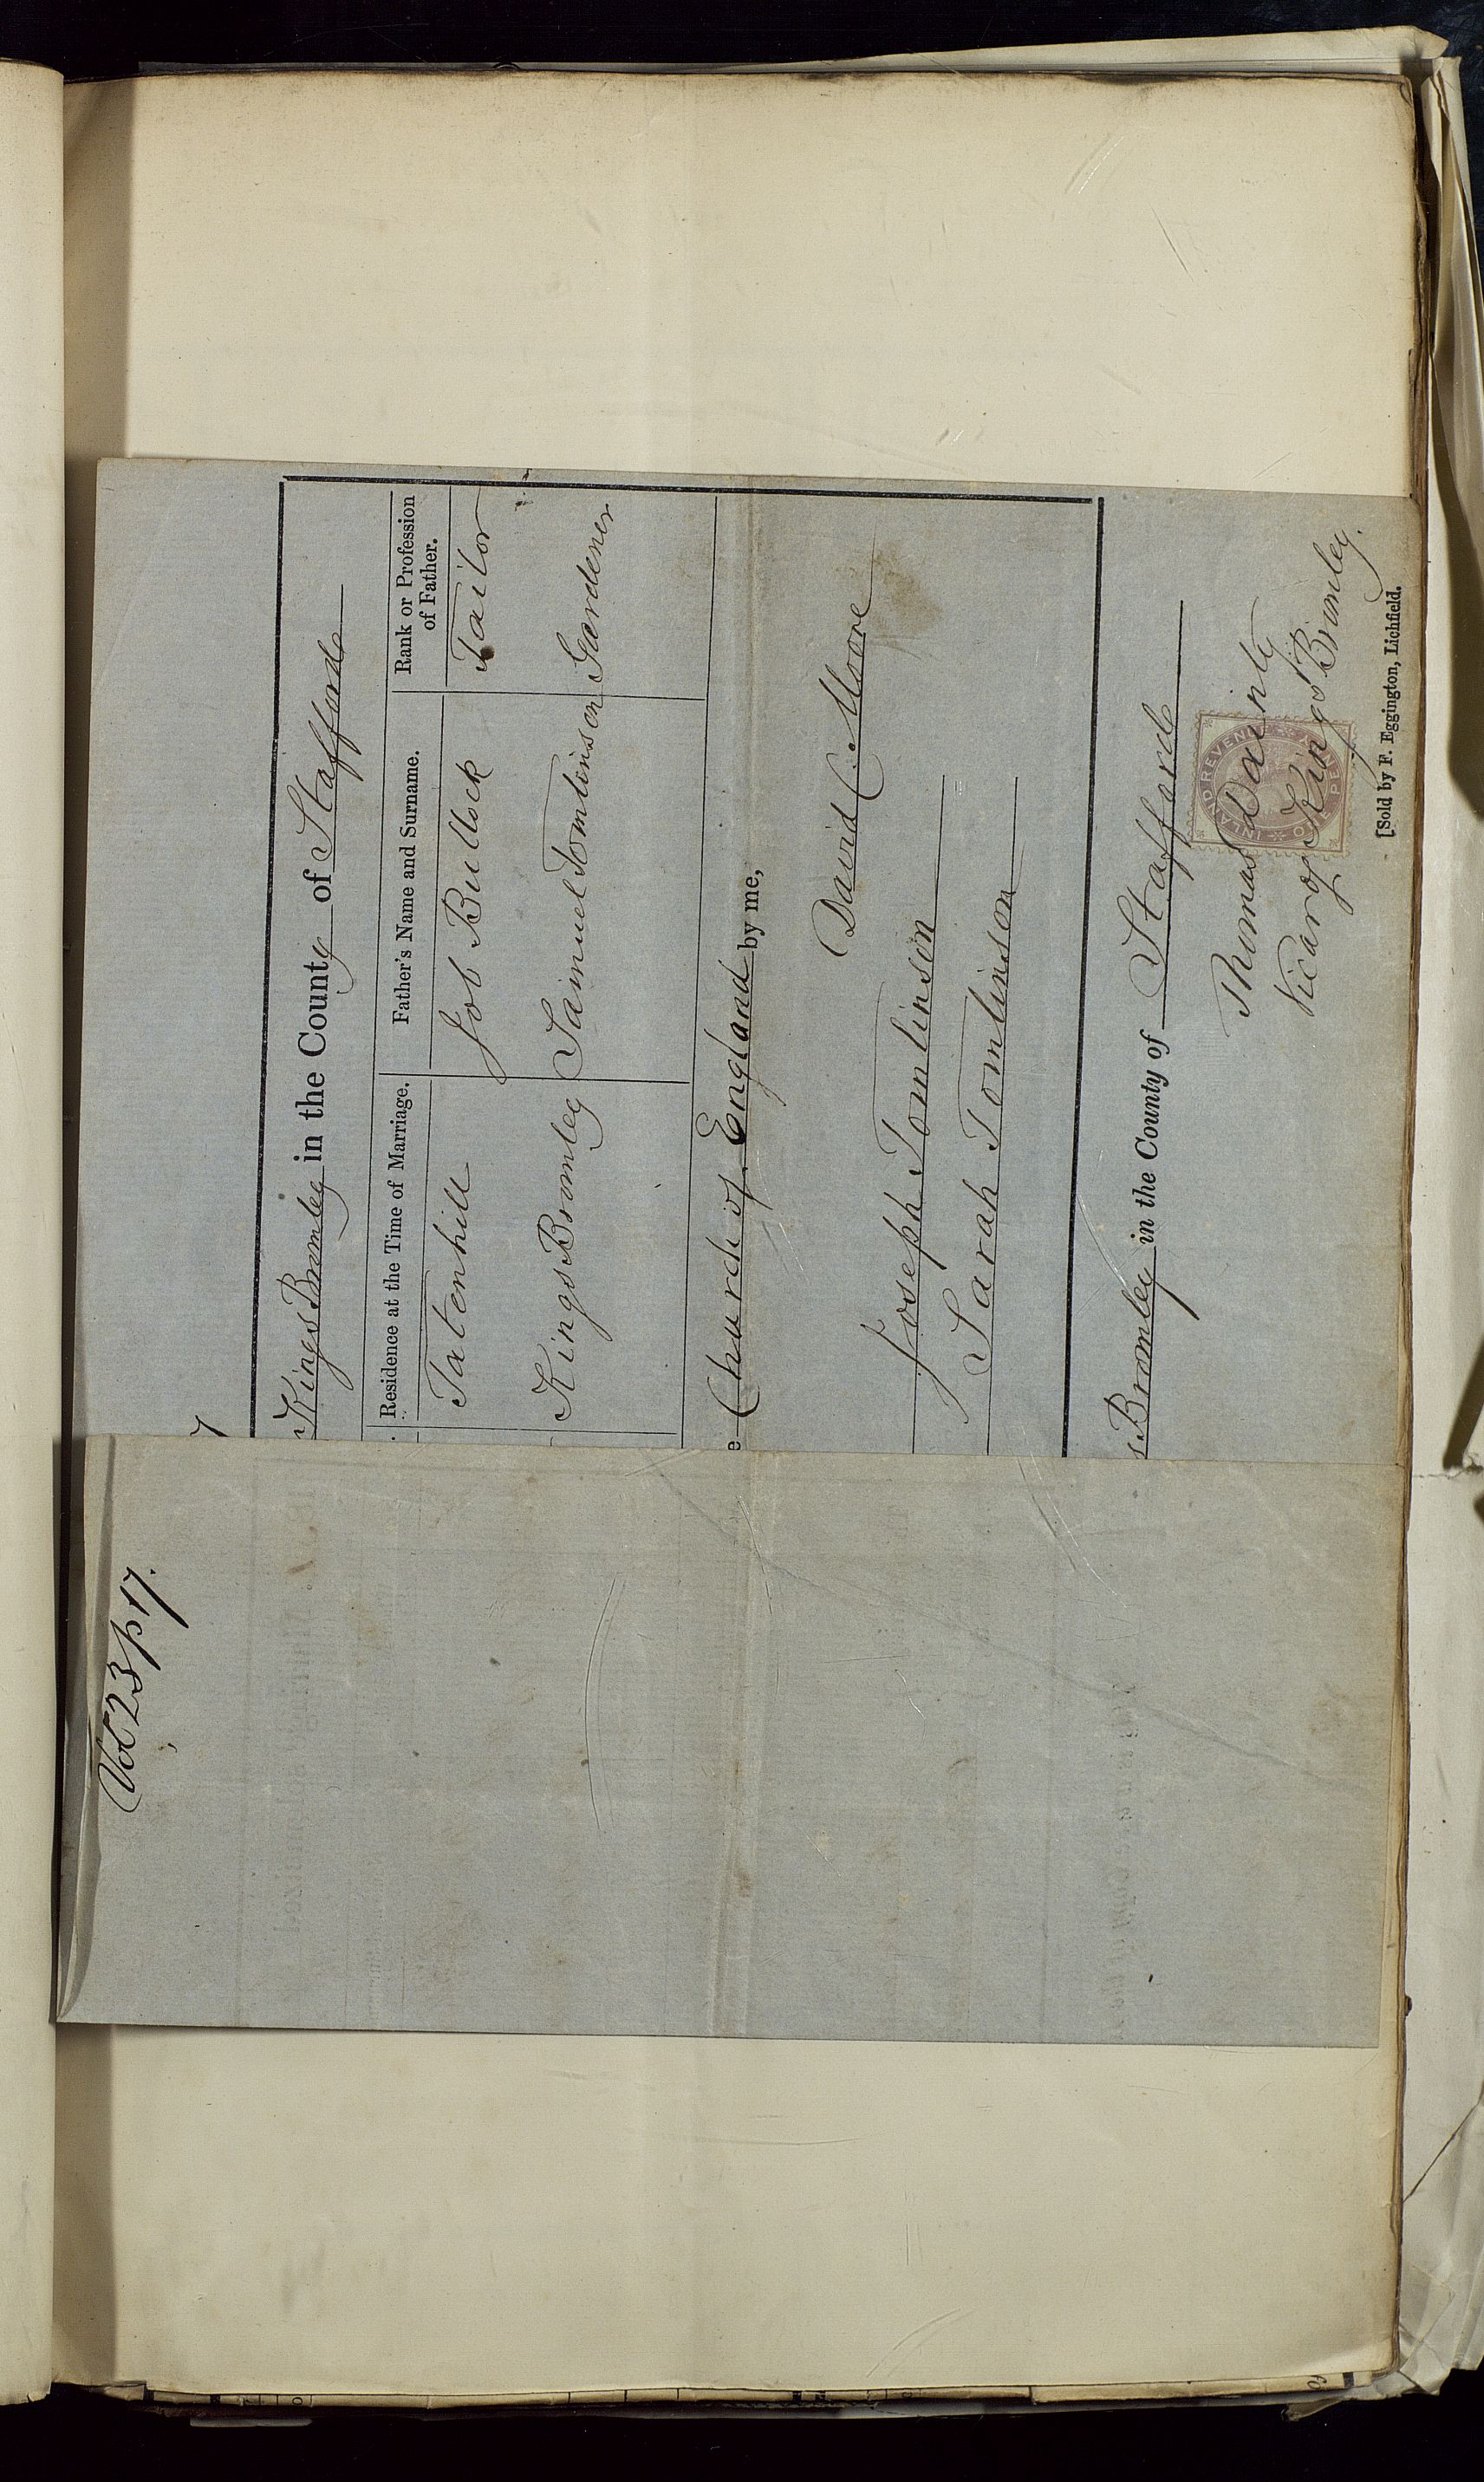 Vol 23 p 17.
Kings Bromley in the County of Stafford
Residence at the Time of Marriage.
Father's Name and Surname.
Rank or Profession of Father.
Tatenhill Job Bullock Tailor
Kings Bromley Samuel Tomlinson Gardener
e Church of England by me,
David C. Moore
Joseph Tomlinson
Sarah Tomlinson
s Bromley in the County of Stafford
INLAND REVENUE
ONE PENNY
Thomas Dainty
Vicar of Kings Bromley.
[Sold by F. Eggington, Lichfield.